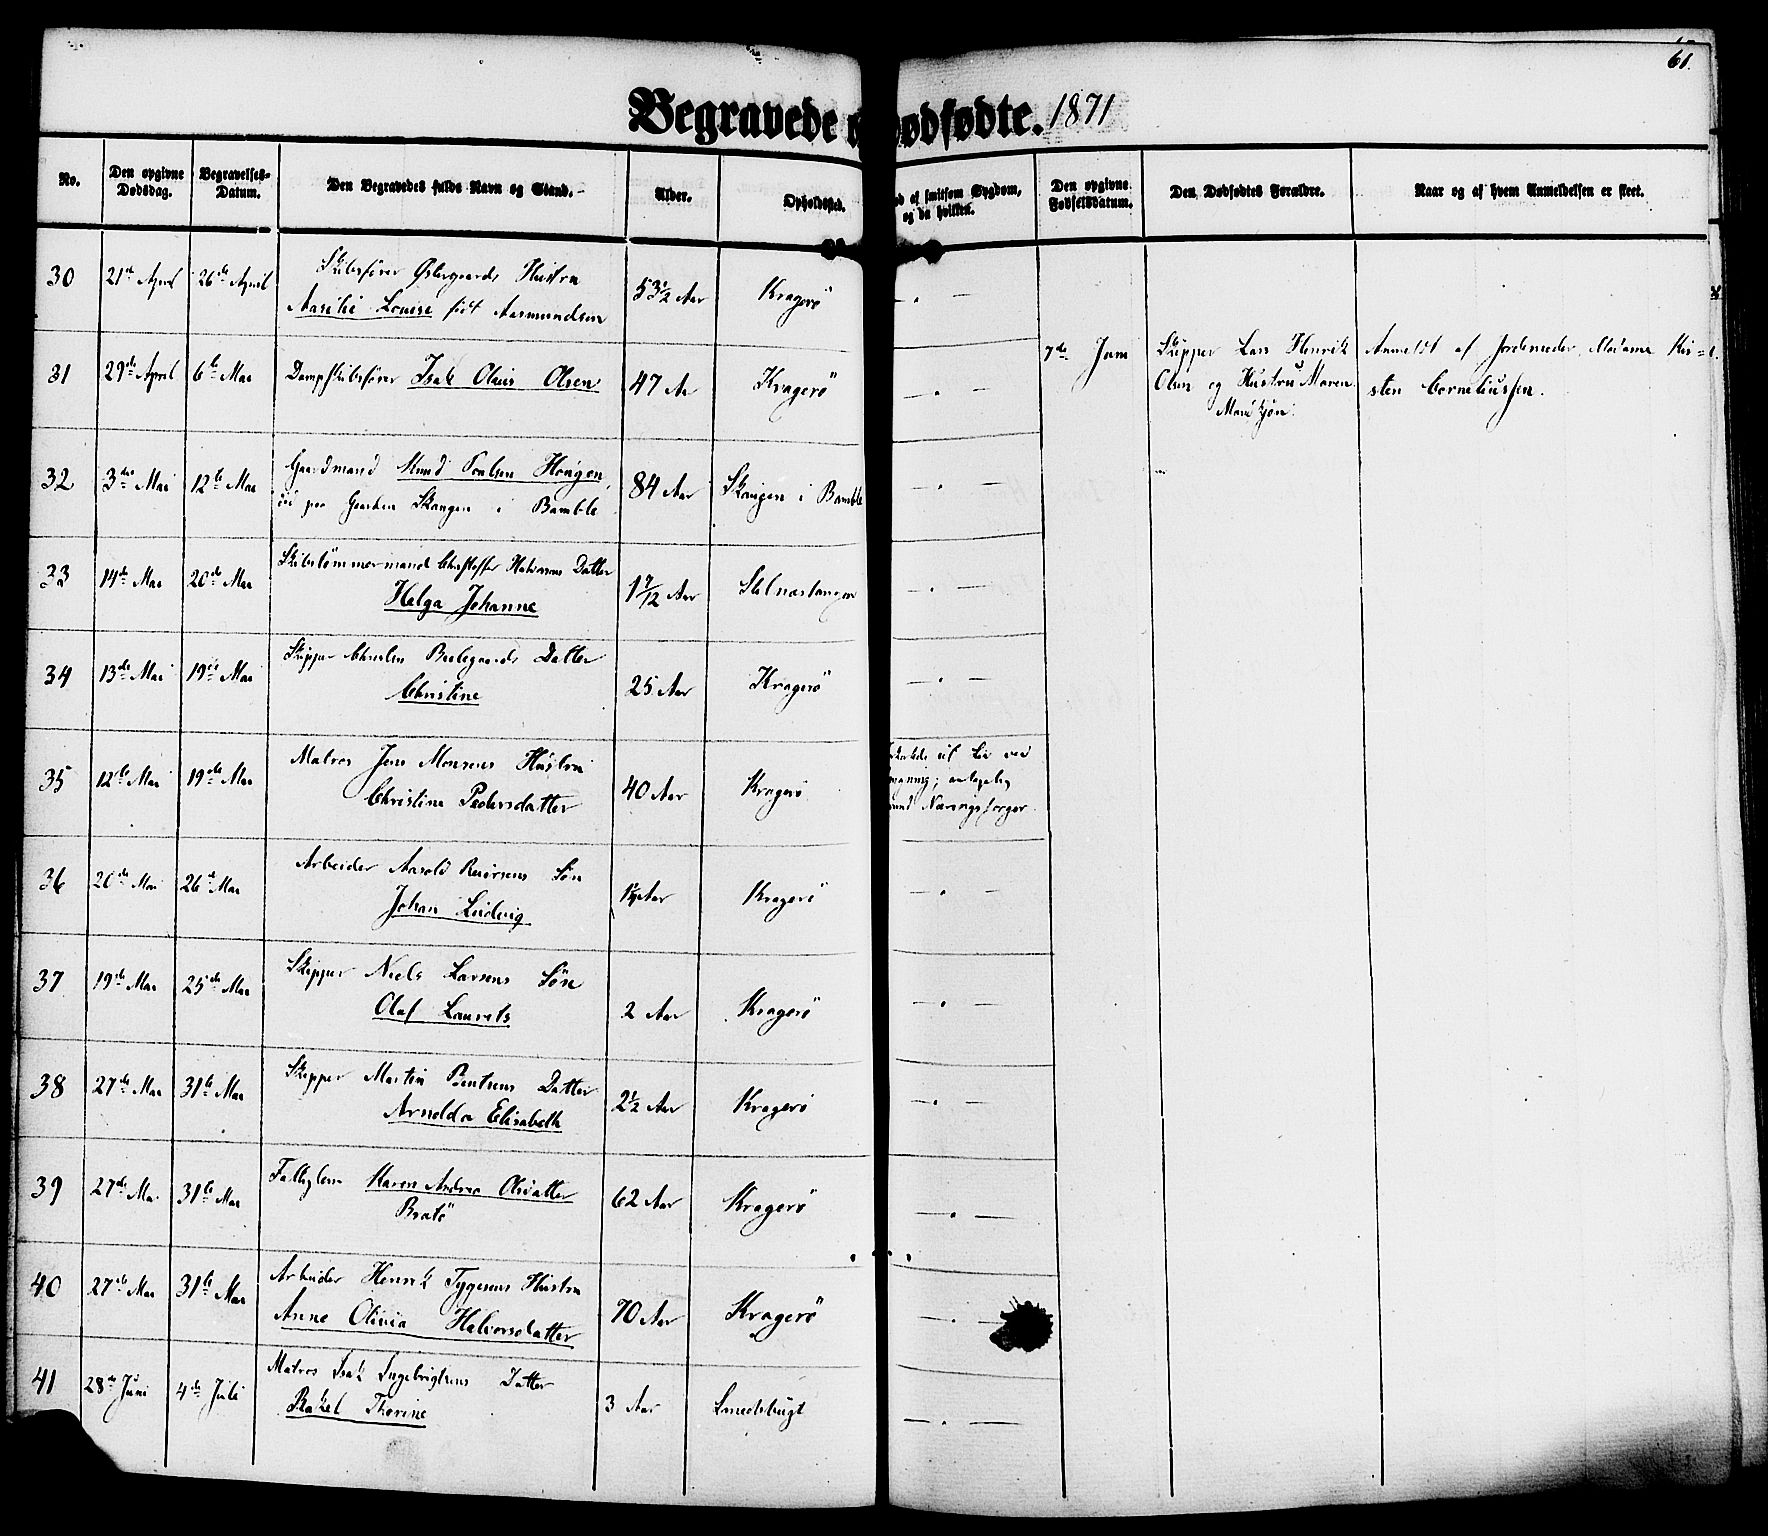 61.
Begravede Dødfødte. 1871
No.
Den opgivne Dødsdag.
Begravelses-Datum.
Den Begravedes fulde Navn og Stand.
Alder.
Opholdssted.
af smitsom Sygdom, og da hvilken.
Den opgivne Fødselsdatum.
Den Dødfødtes Forældre.
Naar og af hvem Anmeldelsen er skeet.
30 21de April 26de April Skibsfører Østergaards Hustru
Louise født Aasmundsen 53 1/2 Aar Kragerö
31 29de April 6te Mai Dampskibsfører Isak Olaus Olsen 47 Aar Kragerö
7de Juni Skipper Lars Henrik
Olsen og Hustru Maren
Anmeldt af Jordemoder Madame Kir=
sten Corneliussen.
32 3die Mai 12te Mai Gaardmand Knud Poulsen Haugen,
paa Gaarden Skaugen i Bamble 84 Aar Skaugen i Bamble
33 14de Mai 20de Mai Skibstömmermand Halvorsens Datter
Helga Johanne 1 7/12 Aar Stilnestangen
34 13de Mai 19de Mai Skipper Datter
Christine 25 Aar Kragerö
35 12te Mai 19de Mai Matros Jens Monsens Hustru
Christine Pedersdatter 40 Aar Kragerö
sit Liv ved
antagelig
Næringssorger
36 20de Mai 26de Mai Arbeider Aarold Søn
Johan Ludvig Aar Kragerö
37 19de Mai 25de Mai Skipper Niels Larsens Søn
Olaf Laurits 2 Aar Kragerö
38 27de Mai 31te Mai Skipper Martin Datter
Arnolda Elisabeth 2 1/2 Aar Kragerö
39 27de Mai 31te Mai Fattiglem Karen Andrea Olsdatter
Bratö 62 Aar Kragerö
40 27de Mai 31te Mai Arbeider Henrik Tygesens Hustru
Anne Olivia Halvorsdatter 70 Aar Kragerö
41 28de Juni 4de Juli Matros Isak Ingebrigtsens Datter
Rakel Thorine 3 Aar Smedsbugt